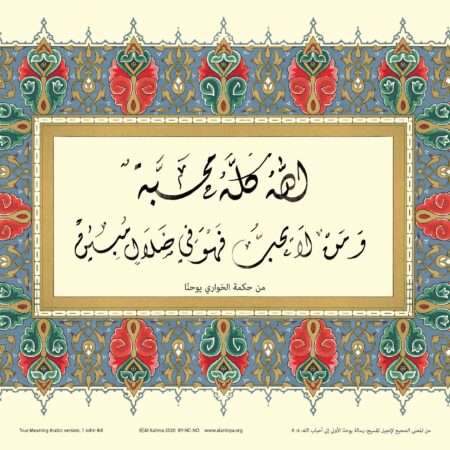 الله كلّه محبّة
ومن لا يحبّ فهو في ضلال مبين
من حكمة الحواري يوحنّا
True Meaning Arabic version, 1 John 4:8
Al Kalima 2020 BY-NC-ND www.alantiya.org
من المعنى الصحيح لإنجيل المسيح، رسالة يوحنّا الأولى إلى أحباب الله، ٤: ٨